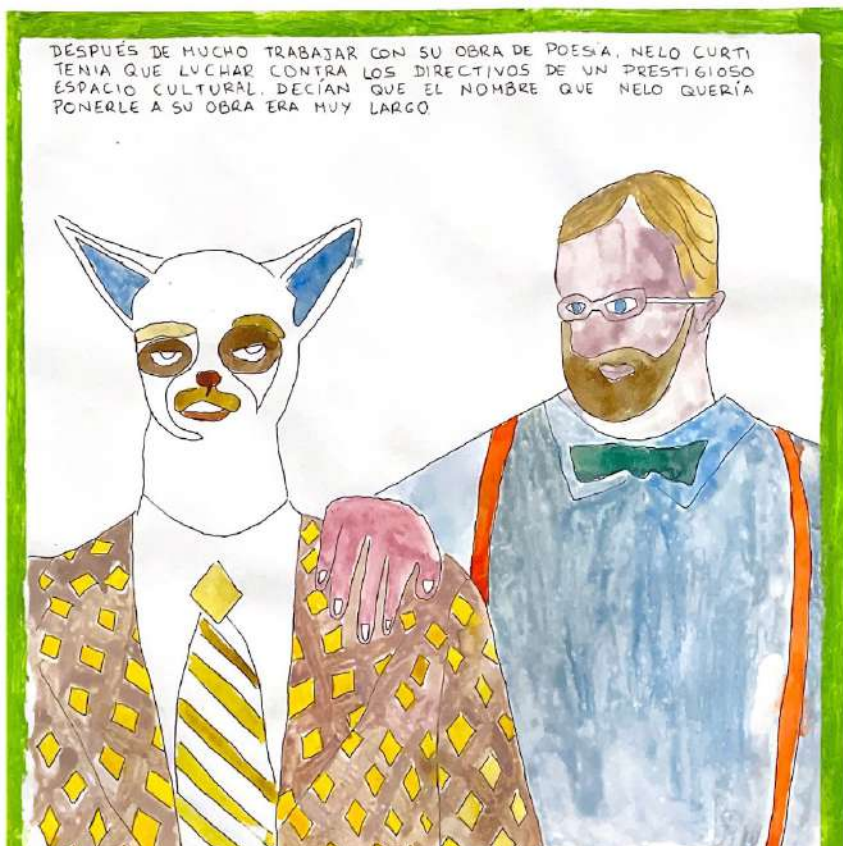 DESPUÉS DE MUCHO TRABAJAR CON SU OBRA DE POESÍA, NELO CURTI
TENIA QUE LUCHAR CONTRA LOS DIRECTIVOS DE UN PRESTIGIOSO
ESPACIO CULTURAL. DECÍAN QUE EL NOMBRE QUE NELO QUERÍA
PONERLE A SU OBRA ERA MUY LARGO